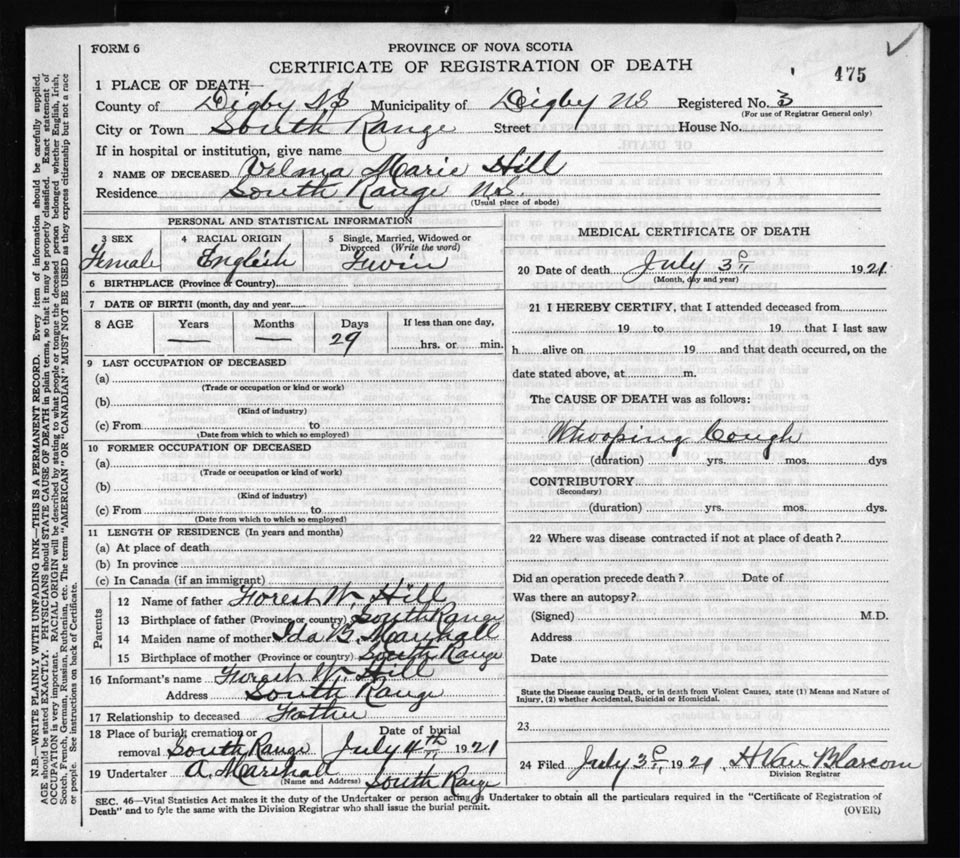 FORM 6
PROVINCE OF NOVA SCOTIA
CERTIFICATE OF REGISTRATION OF DEATH
475
1 PLACE OF DEATH—
County of Digby N S Municipality of Digby NS Registered No. 3
(For use of Registrar General only)
City or Town South Range Street House No.
If in hospital or institution, give name
2 NAME OF DECEASED Velma Marie Hill
Residence South Range N.S.
(Usual place of abode)
PERSONAL AND STATISTICAL INFORMATION
3 SEX 4 RACIAL ORIGIN 5 Single, Married, Widowed or Divorced (Write the word)
Female English Twin
6 BIRTHPLACE (Province or Country)
7 DATE OF BIRTH (month, day and year)
8 AGE Years Months Days If less than one day,
— — 29 hrs. or min.
9 LAST OCCUPATION OF DECEASED
(a)
(Trade or occupation or kind or work)
(b)
(Kind of industry)
(c) From to
(Date from which to which so employed)
10 FORMER OCCUPATION OF DECEASED
(a)
(Trade or occupation or kind of work)
(b)
(Kind of industry)
(c) From to
(Date from which to which so employed)
11 LENGTH OF RESIDENCE (In years and months)
(a) At place of death
(b) In province
(c) In Canada (if an immigrant)
Parents
12 Name of father Forest W. Hill
13 Birthplace of father (Province or country) South Range
14 Maiden name of mother Ida B. Marshall
15 Birthplace of mother (Province or country) South Range
16 Informant's name Forest W. Hill
Address South Range
17 Relationship to deceased Father
18 Place of burial, cremation or removal South Range Date of burial July 4th 1921
19 Undertaker A. Marshall South Range
(Name and Address)
MEDICAL CERTIFICATE OF DEATH
20 Date of death July 3 1921
(Month, day and year)
21 I HEREBY CERTIFY, that I attended deceased from
19 to 19 that I last saw
h alive on 19 and that death occurred, on the
date stated above, at m.
The CAUSE OF DEATH was as follows:
Whooping Cough
(duration) yrs. mos. dys
CONTRIBUTORY
(Secondary)
(duration) yrs. mos. dys.
22 Where was disease contracted if not at place of death?
Did an operation precede death? Date of
Was there an autopsy?
(Signed) M.D.
Address
Date
State the Disease causing Death, or in death from Violent Causes, state (1) Means and Nature of
Injury, (2) whether Accidental, Suicidal or Homicidal.
23
24 Filed July 3 1921 H Van Blarcom
Division Registrar
SEC. 46—Vital Statistics Act makes it the duty of the Undertaker or person acting as Undertaker to obtain all the particulars required in the "Certificate of Registration of
Death" and to fyle the same with the Division Registrar who shall issue the burial permit.
(OVER)
N.B.—WRITE PLAINLY WITH UNFADING INK—THIS IS A PERMANENT RECORD. Every item of information should be carefully supplied.
AGE should be stated EXACTLY. PHYSICIANS should STATE CAUSE OF DEATH in plain terms, so that it may be properly classified. Exact statement of
OCCUPATION is very important. RACIAL ORIGIN will be described by stating to what people or tongue the deceased person belonged whether English, Irish,
Scotch, French, German, Russian, Ruthenian, etc. The terms "AMERICAN" OR "CANADIAN" MUST NOT BE USED as they express citizenship but not a race
or people. See instructions on back of Certificate.